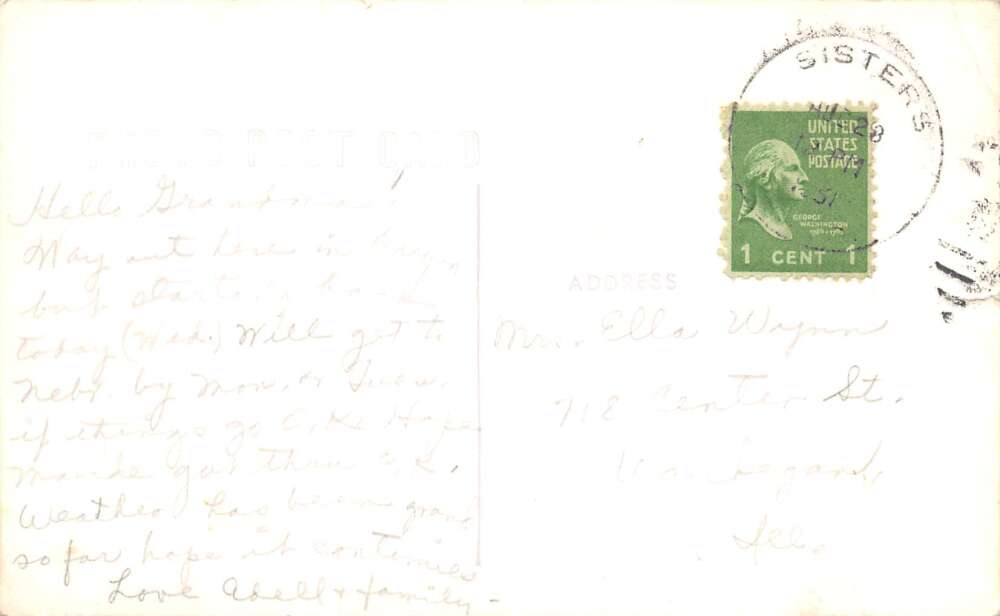 SISTERS
AUG 28
51
UNITED
STATES
POSTAGE
GEORGE
WASHINGTON
1 CENT 1
PHOTO POST CARD
ADDRESS
Hello Grandma!
Way out here in
but starting back
today (Wed.) Will get to
Nebr. by Mon. or Tues.
if things go O.K. Hope
Maude got thru O.K.
Weather has been grand
so far hope it continues
Love Adell & family -
Mrs. Ella Wynn
718 Center St.
Waukegan,
Ill.